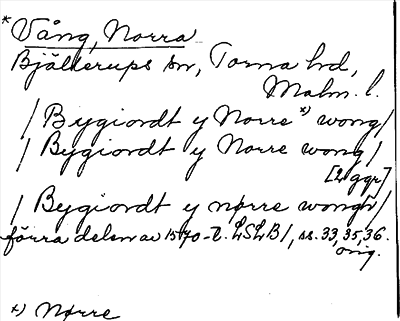 * Vång, Norra
Bjällerups sn, Torna hd,
Malm. l.
/ Bygiordt y Norre *) wong /
/ Bygiordt y Norre wong /
[2 ggr]
/ Bygiordt y nørre wongh /
förra delen av 1570-t. LSLB /, ss. 33, 35, 36.
orig.
*) Nørre